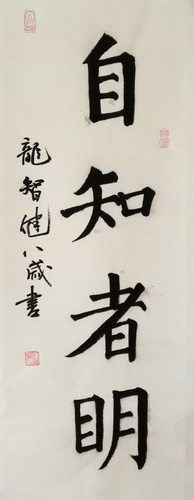 自知者明
龍智健八歲書